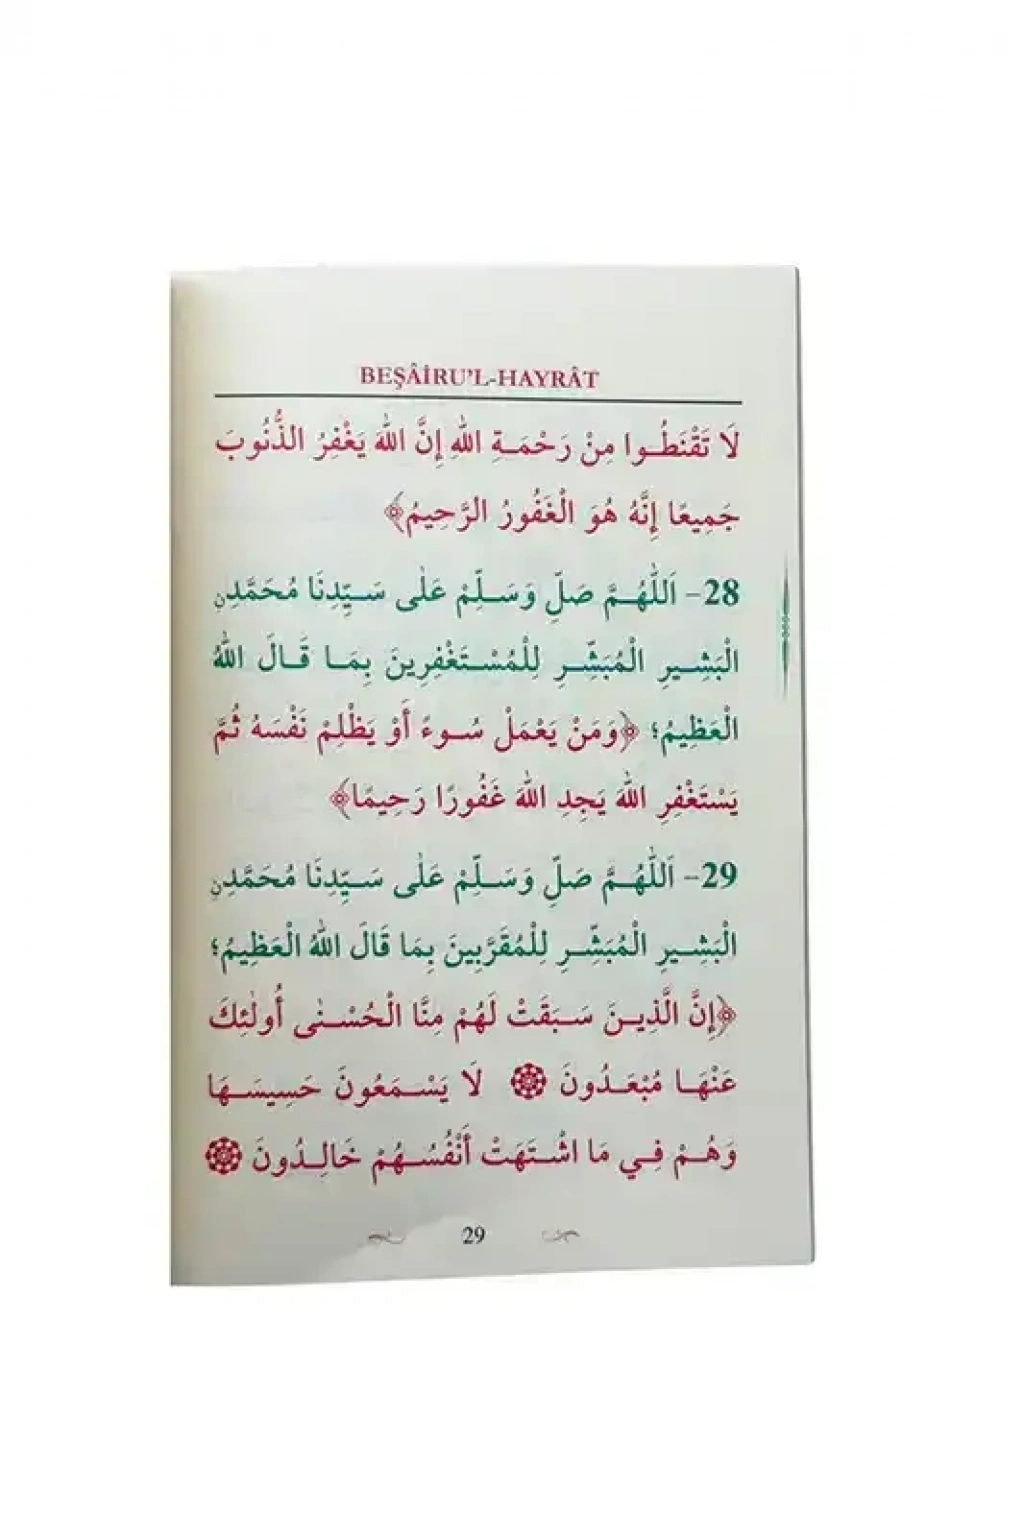 BEŞÂİRU'L-HAYRÂT
لَا تَقْنَطُوا مِنْ رَحْمَةِ اللّٰهِ إِنَّ اللّٰهَ يَغْفِرُ الذُّنُوبَ
جَمِيعًا إِنَّهُ هُوَ الْغَفُورُ الرَّحِيمُ﴾
28- اَللّٰهُمَّ صَلِّ وَسَلِّمْ عَلٰى سَيِّدِنَا مُحَمَّدِنِ
الْبَشِيرِ الْمُبَشِّرِ لِلْمُسْتَغْفِرِينَ بِمَا قَالَ اللّٰهُ
الْعَظِيمُ؛ ﴿وَمَنْ يَعْمَلْ سُوءً أَوْ يَظْلِمْ نَفْسَهُ ثُمَّ
يَسْتَغْفِرِ اللّٰهَ يَجِدِ اللّٰهَ غَفُورًا رَحِيمًا﴾
29- اَللّٰهُمَّ صَلِّ وَسَلِّمْ عَلٰى سَيِّدِنَا مُحَمَّدِنِ
الْبَشِيرِ الْمُبَشِّرِ لِلْمُقَرَّبِينَ بِمَا قَالَ اللّٰهُ الْعَظِيمُ؛
﴿إِنَّ الَّذِينَ سَبَقَتْ لَهُمْ مِنَّا الْحُسْنٰى أُولٰئِكَ
عَنْهَا مُبْعَدُونَ ۞ لَا يَسْمَعُونَ حَسِيسَهَا
وَهُمْ فِي مَا اشْتَهَتْ أَنْفُسُهُمْ خَالِدُونَ ۞
29